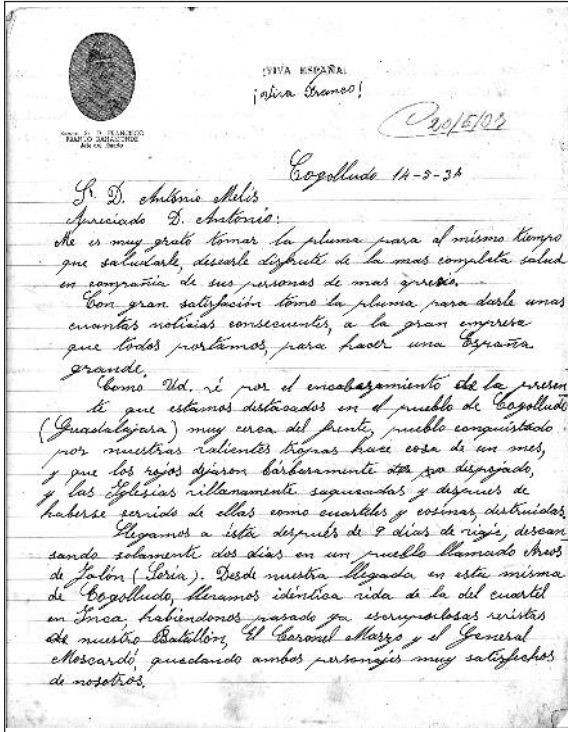 ¡VIVA ESPAÑA!
¡Viva Franco!
Excmo. Sr. D. FRANCISCO
FRANCO BAHAMONDE
Jefe del Estado
Cogolludo 14-5-3
Sr. D. Antonio Melis
Apreciado D. Antonio:
Me es muy grato tomar la pluma para al mismo tiempo
que saludarle, desearle disfrute de la mas completa salud
en compañia de sus personas de mas aprecio.
Con gran satisfacción tomo la pluma para darle unas
cuantas noticias consecuentes, a la gran empresa
que todos portamos, para hacer una España
grande.
Como Ud. vé por el encabezamiento de la presen
te que estamos destacados en el pueblo de Cogolludo
(Guadalajara) muy cerca del frente, pueblo conquistado
por nuestras valientes tropas hace cosa de un mes,
y que los rojos dejaron bárbaramente despojado,
y las Iglesias villanamente saqueadas y despues de
haberse servido de ellas como cuarteles y cosinas, destruidas.
Llegamos a ésta después de 9 dias de viaje, descan
sando solamente dos dias en un pueblo llamado Arcos
de Jalón (Soria). Desde nuestra llegada en esta misma
de Cogolludo, llevamos identica vida de la del cuartel
en Inca, habiendonos pasado ya escrupulosas revistas
de nuestro Batallón, El Coronel Marzo y el General
Moscardó, quedando ambos personajes muy satisfechos
de nosotros.